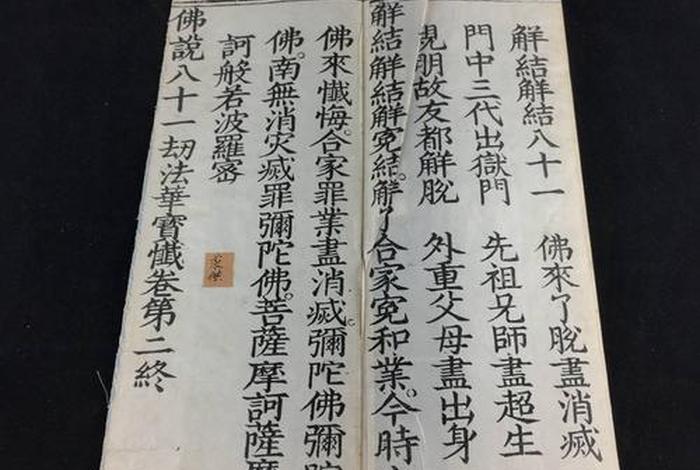 觧結觧結八十一 佛來了脫盡消滅
門中三代出獄門 先祖兄師盡超生
見朋故友都觧脫 外重父母盡出身
觧結觧結觧寃結。觧了合家寃和業。今時
佛來懺悔。合家罪業盡消滅。彌陀佛彌陀
佛。南無消灾滅罪彌陀佛。菩薩摩訶薩摩
訶般若波羅蜜
佛說八十一刼法華寶懺卷第二終